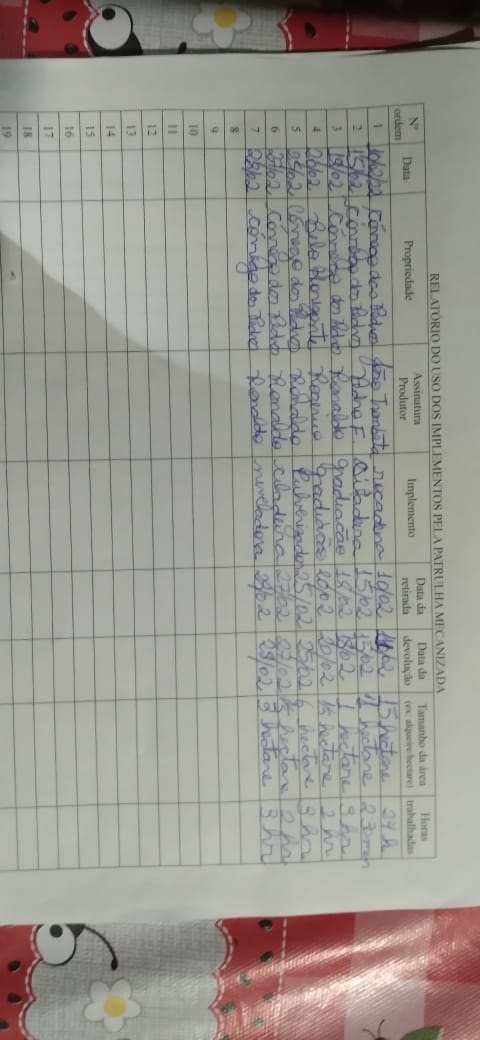 RELATÓRIO DO USO DOS IMPLEMENTOS PELA PATRULHA MECANIZADA
Nº ordem Data Propriedade Assinatura Produtor Implemento Data da retirada Data da devolução Tamanho da área (ex: alqueire/hectare) Horas trabalhadas
1 Córrego dos Pedros João roçadeira 10/02 15 hectare 24 h
2 15/02 Córrego dos Pedro Pedro F. 15/02 15/02 hectare
3 18/02 Córrego dos Pedro Ronaldo gradiação 18/02 18/02 1 hectare 3 hr
4 20/02 Belo Horizonte Rogerio gradiação 20/02 20/02 hectare 2 hr
5 25/02 Córrego dos Pedros Ronaldo Pulverizador 25/02 25/02 hectare 3 hr
6 27/02 Córrego dos Pedros Ronaldo 27/02 27/02 hectare 2 hr
7 28/02 Córrego dos Pedros Ronaldo niveladora 28/02 3 hectare 3 hr
8
9
10
11
12
13
14
15
16
17
18
19